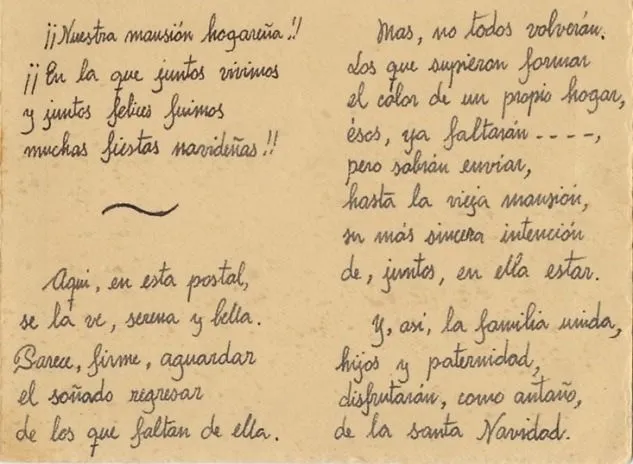 ¡¡Nuestra mansión hogareña!!
¡¡En la que juntos vivimos
y juntos felices fuimos
muchas fiestas navideñas!!
Aqui, en esta postal,
se la ve, serena y bella.
Parece, firme, aguardar
el soñado regresar
de los que faltan de ella.
Mas, no todos volverán.
Los que supieron formar
el cálor de un propio hogar,
ésos, ya faltarán ----,
pero sabrán enviar,
hasta la vieja mansión,
su más sincera intención
de, juntos, en ella estar.
Y, asi, la familia unida,
hijos y paternidad,
disfrutarán, como antaño,
de la santa Navidad.